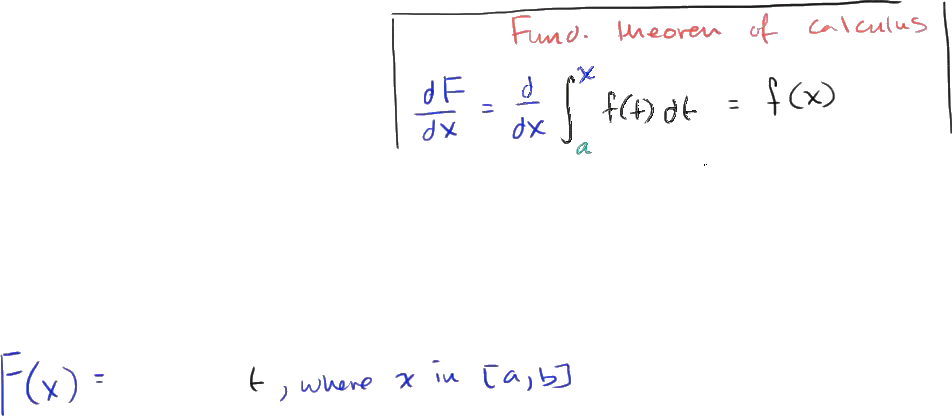 Fund. theorem of calculus
dF/dx = d/dx ∫_a^x f(t) dt = f(x)
F(x) = t, where x in [a,b]